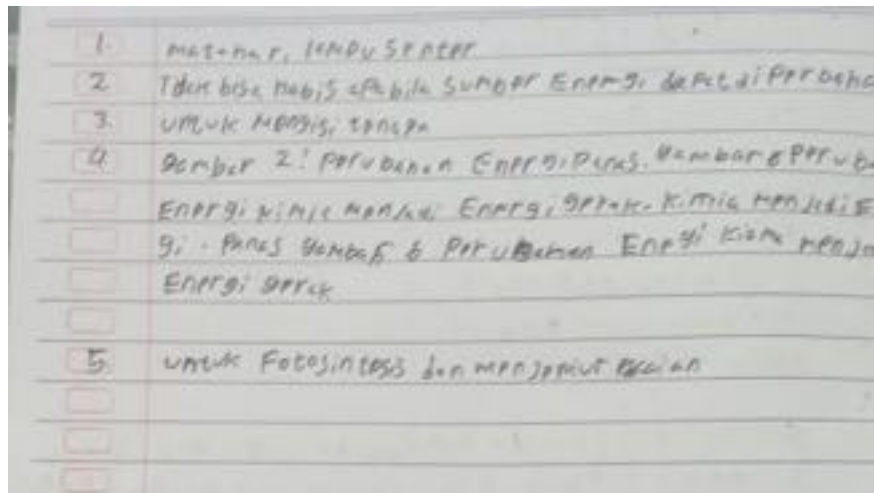 1. matahar, lampu senter
2 Tidak bisa habis apabila sumber Energi dapat di perbaha
3. untuk mengisi tenaga
4 Gambar 2: perubahan Energi panas. Gambar 6 perub
Energi kimia menjadi Energi gerak. kimia menjadi E
gi. panas gambar 6 perubahan Energi kimia menja
Energi gerak
5 untuk Fotosintesis dan menjemur